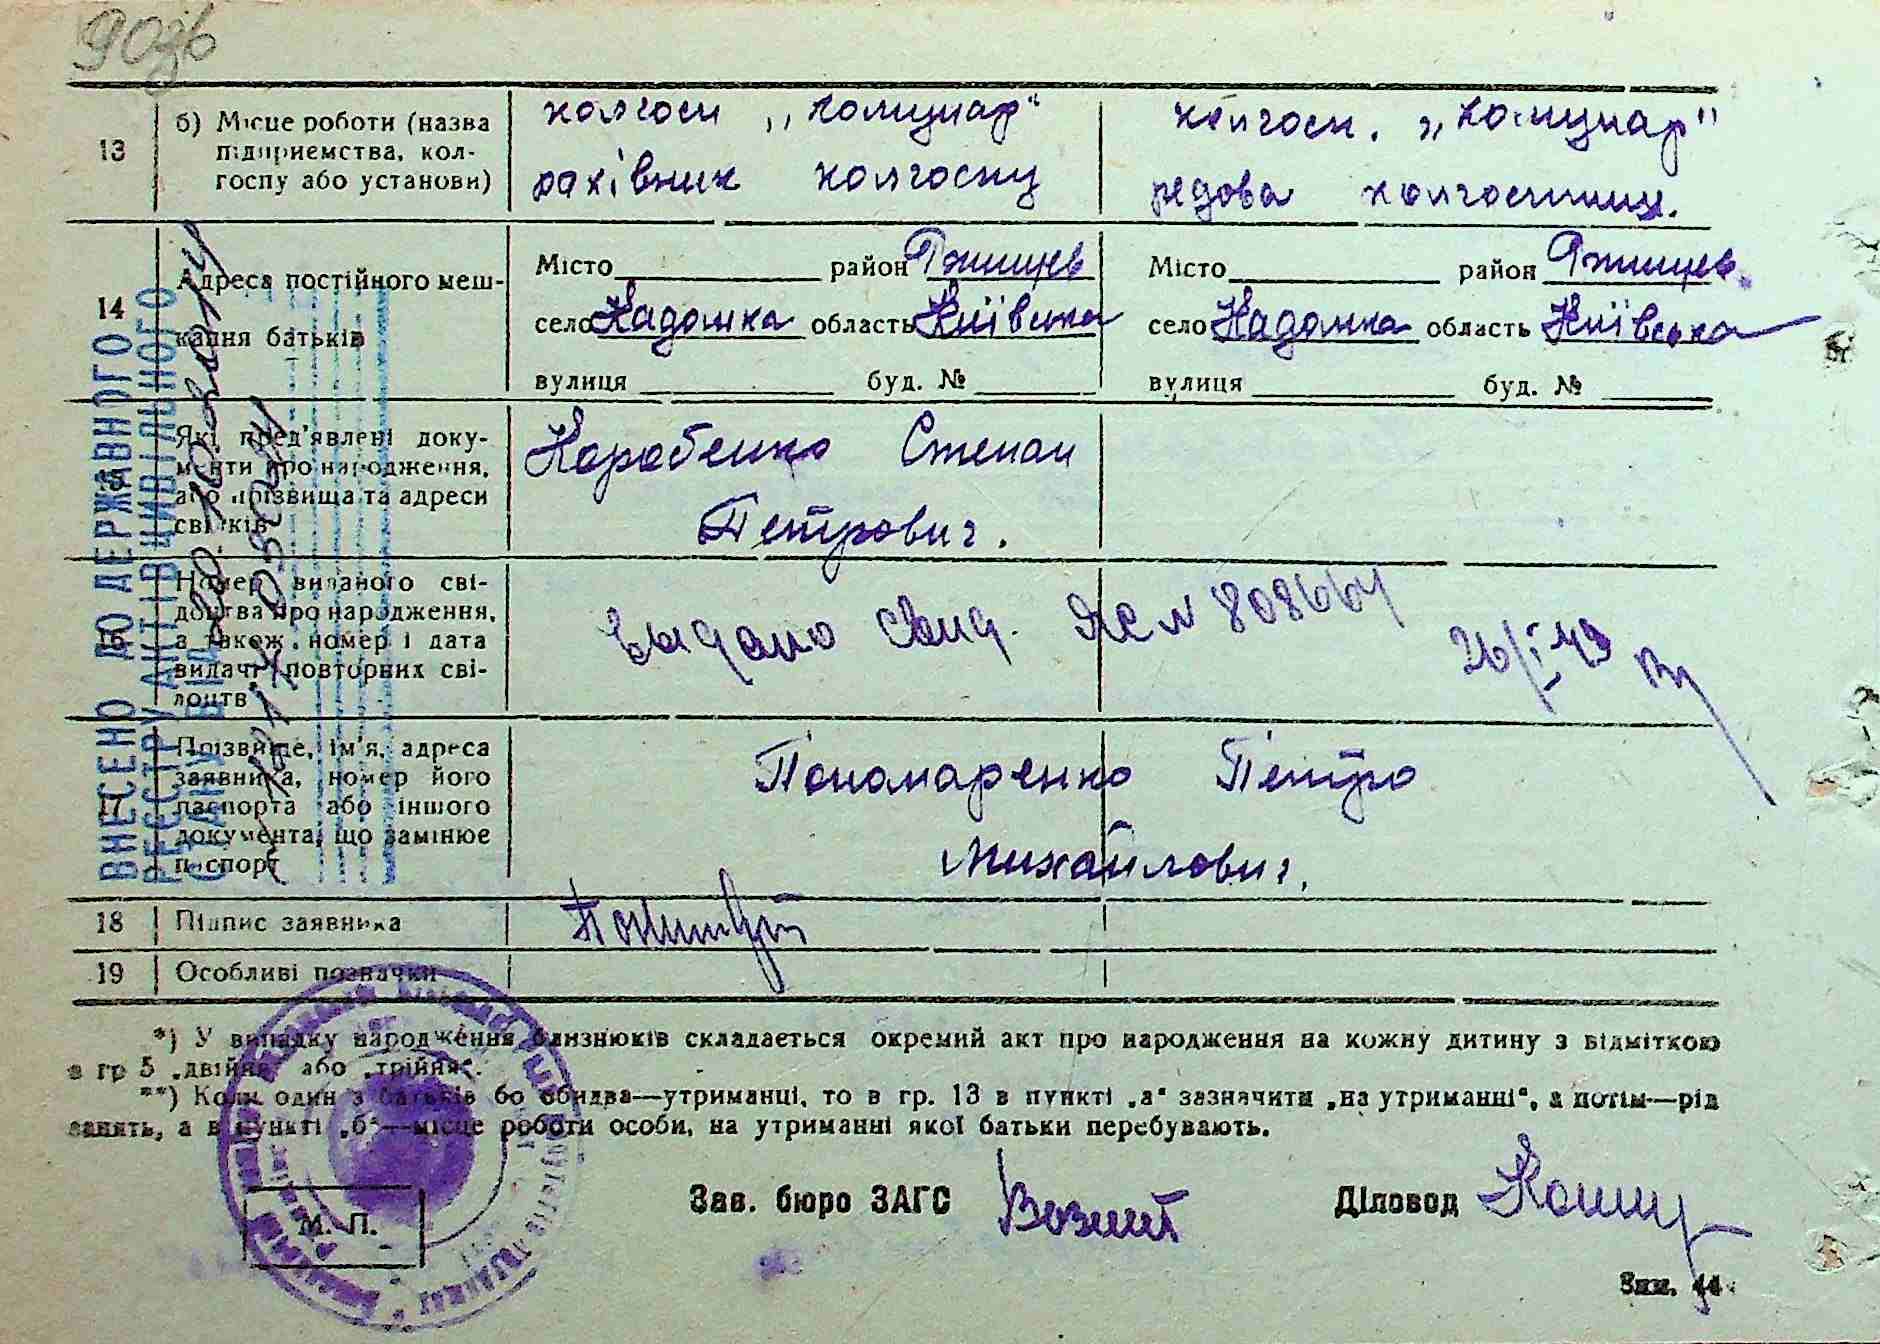 90зв
13
б) Місце роботи (назва
підприємства, кол-
госпу або установи)
колгосп „Комунар"
рахівник колгоспу
колгосп. „Комунар"
рядова колгоспниця.
14
Адреса постійного меш-
кання батьків
Місто район Ржищев
село Кадомка область Київська
вулиця буд. №
Місто район Ржищев
село Кадомка область Київська
вулиця буд. №
15
Які пред'явлені доку-
менти про народження,
або прізвища та адреси
свідків
Коробенко Степан
Петрович.
16
Номер виданого сві-
доцтва про народження,
а також номер і дата
видачі повторних сві-
доцтв
Выдано Свид. ЯС № 808664
26/I-49
17
Прізвище, ім'я, адреса
заявника, номер його
паспорта або іншого
документа, що замінює
паспорт
Пономаренко Петро
Михайлович.
18
Підпис заявника
19
Особливі позначки
ВНЕСЕНО ДО ДЕРЖАВНОГО
РЕЄСТРУ АКТІВ ЦИВІЛЬНОГО
СТАНУ ЗА №
*) У випадку народження близнюків складається окремий акт про народження на кожну дитину з відміткою
в гр 5 „двійня" або „трійня".
**) Коли один з батьків бо обидва—утриманці, то в гр. 13 в пункті „а" зазначити „на утриманні", а потім—рід
занять, а в пункті „б"—місце роботи особи, на утриманні якої батьки перебувають.
М. П.
Зав. бюро ЗАГС
Діловод
Зам. 44